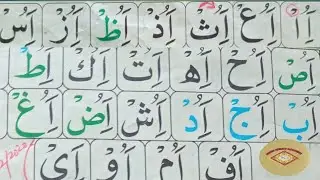 اَاْ اَعْ اَثْ اَذْ اَظْ اَزْ اَسْ
اَصْ اَحْ اَهْ اَتْ اَكْ اَطْ
اَبْ اَجْ اَدْ اَشْ اَضْ اَغْ
اَفْ اَمْ اَوْ اَیْ